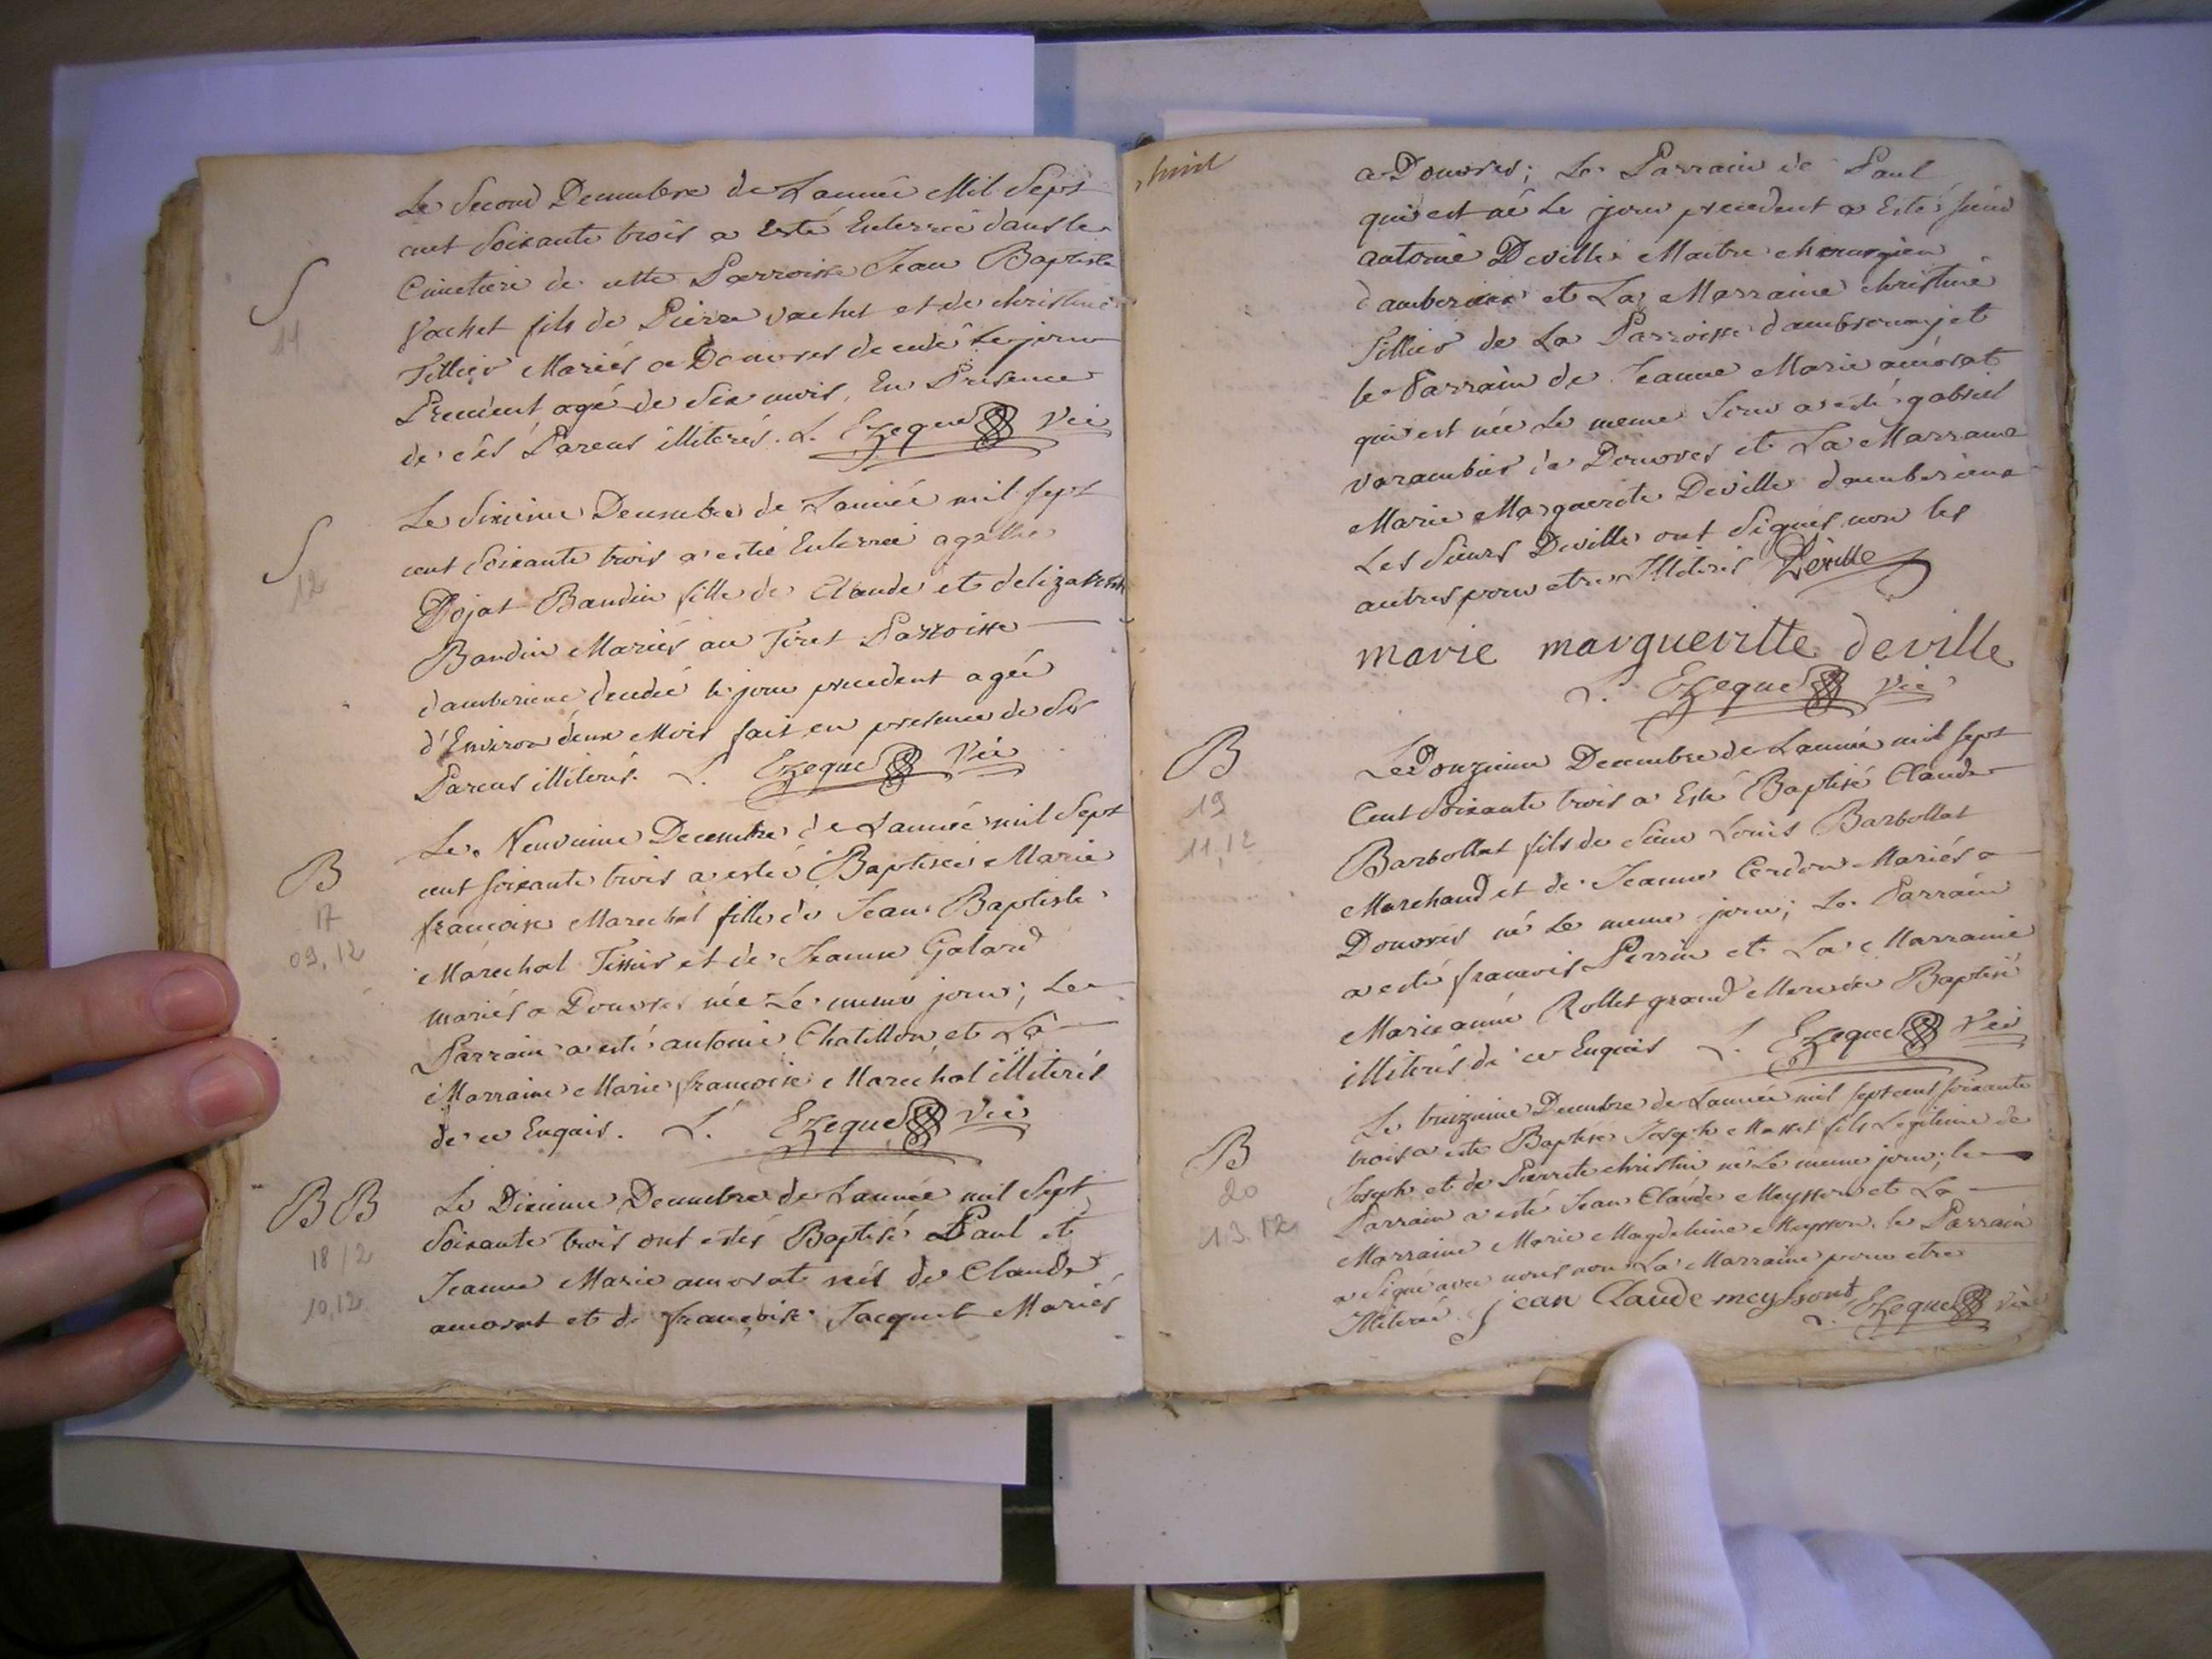 Le Second Decembre de L'année Mil Sept
cent Soixante trois a Esté Enterré dans le
Cimetiere de cette Parroisse Jean Baptiste
S
11
Vachet fils de Pierre Vachet et de christine
Tillier Mariés a Douvres decedé le jour
Precedent agé de Six mois, En Presence
de cés Parens illiterés. L. Ezeque Vic
Le Sixieme Decembre de L'année mil sept
cent Soixante trois a estée Enterrée agathe
S
12
Dojat Baudin fille de Claude et delizabeth
Baudin Mariés au Tiret Parroisse
d'amberieux decedée le jour precedent agée
d'Environ deux Mois fait en presence de Ses
Parens illiterés. L. Ezeque Vic
Le Neuvieme Decembre de L'année mil Sept
cent soixante trois a estée Baptisée Marie
B
17
09,12
francoise Marechal fille de Jean Baptiste
Maréchal Tissier et de Jeanne Galard
mariés a Douvres née Le meme jour; Le
Parrain a esté antoine Chatillon, et La
Marraine Marie francoise Maréchal illiterés
de ce Enquis. L. Ezeque Vic
BB
18/2
10,12
Le Dixieme Decembre de L'année mil Sept
Soixante trois ont estés Baptisé Paul et
Jeanne Marie amorat nés de Claude
amorat et de françoise Jacquet Mariés
huit
a Douvres; Le Parrain de Paul
qui est né Le jour precedent a Esté sieur
antoine Deville Maitre chirurgien
d'amberieux et La Marraine christine
Tillier de La Parroisse d'ambronay et
le Parrain de Jeanne Marie amorat
qui est née Le meme Jour a esté gabriel
varambier de Douvres et La Marraine
Marie Marguerite Deville d'amberieux
Les Sieurs Deville ont Signés non les
autres pour etre Illiterés Deville
marie margueritte deville
L. Ezeque Vic
B
19
11,12
Le Douzieme Decembre de L'année mil sept
Cent Soixante trois a Esté Baptisé Claude
Barbollat fils de Sieur Louis Barbollat
Marchand et de Jeanne Cerdon Mariés a
Douvres né Le meme jour; Le Parrain
a esté francois Perrin et La Marraine
Marie anne Rollet grand Mere du Baptisé
illiterés de ce Enquis L. Ezeque Vic
Le treizieme Decembre de L'année mil sept cent soixante
B
20
13.12
trois a esté Baptisé Joseph Masset fils Legitime de
Joseph et de Pierrete christin né Le meme jour; le
Parrain a esté Jean Claude Meysson et La
Marraine Marie Magdeleine Meysson, le Parrain
a Signé avec nous non La Marraine pour etre
Illiterée jean Claude meyssont L. Ezeque Vic